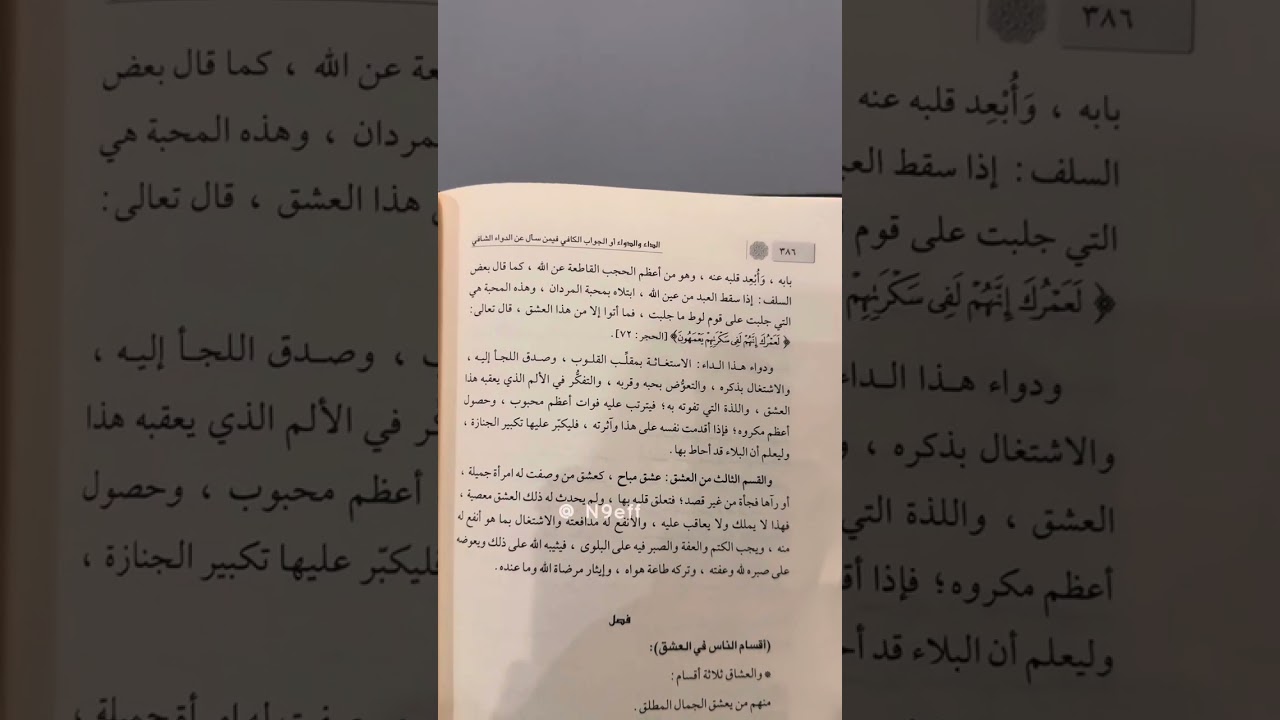 ٣٨٦
الداء والدواء أو الجواب الكافي فيمن سأل عن الدواء الشافي
بابه ، وَأُبْعِد قلبه عنه ، وهو من أعظم الحجب القاطعة عن الله ، كما قال بعض
السلف : إذا سقط العبد من عين الله ، ابتلاه بمحبة المردان ، وهذه المحبة هي
التي جلبت على قوم لوط ما جلبت ، فما أتوا إلا من هذا العشق ، قال تعالى :
﴿ لَعَمْرُكَ إِنَّهُمْ لَفِى سَكْرَتِهِمْ يَعْمَهُونَ﴾ [الحجر : ٧٢] .
ودواء هـذا الـداء : الاستغـاثـة بمقلِّـب القلـوب ، وصـدق اللجـأ إليـه ،
والاشتغال بذكره ، والتعوُّض بحبه وقربه ، والتفكُّر في الألم الذي يعقبه هذا
العشق ، واللذة التي تفوته به ؛ فيترتب عليه فوات أعظم محبوب ، وحصول
أعظم مكروه ؛ فإذا أقدمت نفسه على هذا وآثرته ، فليكبّر عليها تكبير الجنازة ،
وليعلم أن البلاء قد أحاط بها .
والقسم الثالث من العشق : عشق مباح ، كعشق من وصفت له امرأة جميلة ،
أو رآها فجأة من غير قصد ؛ فتعلق قلبه بها ، ولم يحدث له ذلك العشق معصية ،
فهذا لا يملك ولا يعاقب عليه ، والأنفع له مدافعته والاشتغال بما هو أنفع له
منه ، ويجب الكتم والعفة والصبر فيه على البلوى ، فيثيبه الله على ذلك ويعوضه
على صبره لله وعفته ، وتركه طاعة هواه ، وإيثار مرضاة الله وما عنده .
فصل
(أقسام الناس في العشق) :
• والعشاق ثلاثة أقسام :
منهم من يعشق الجمال المطلق .
@ N9eff